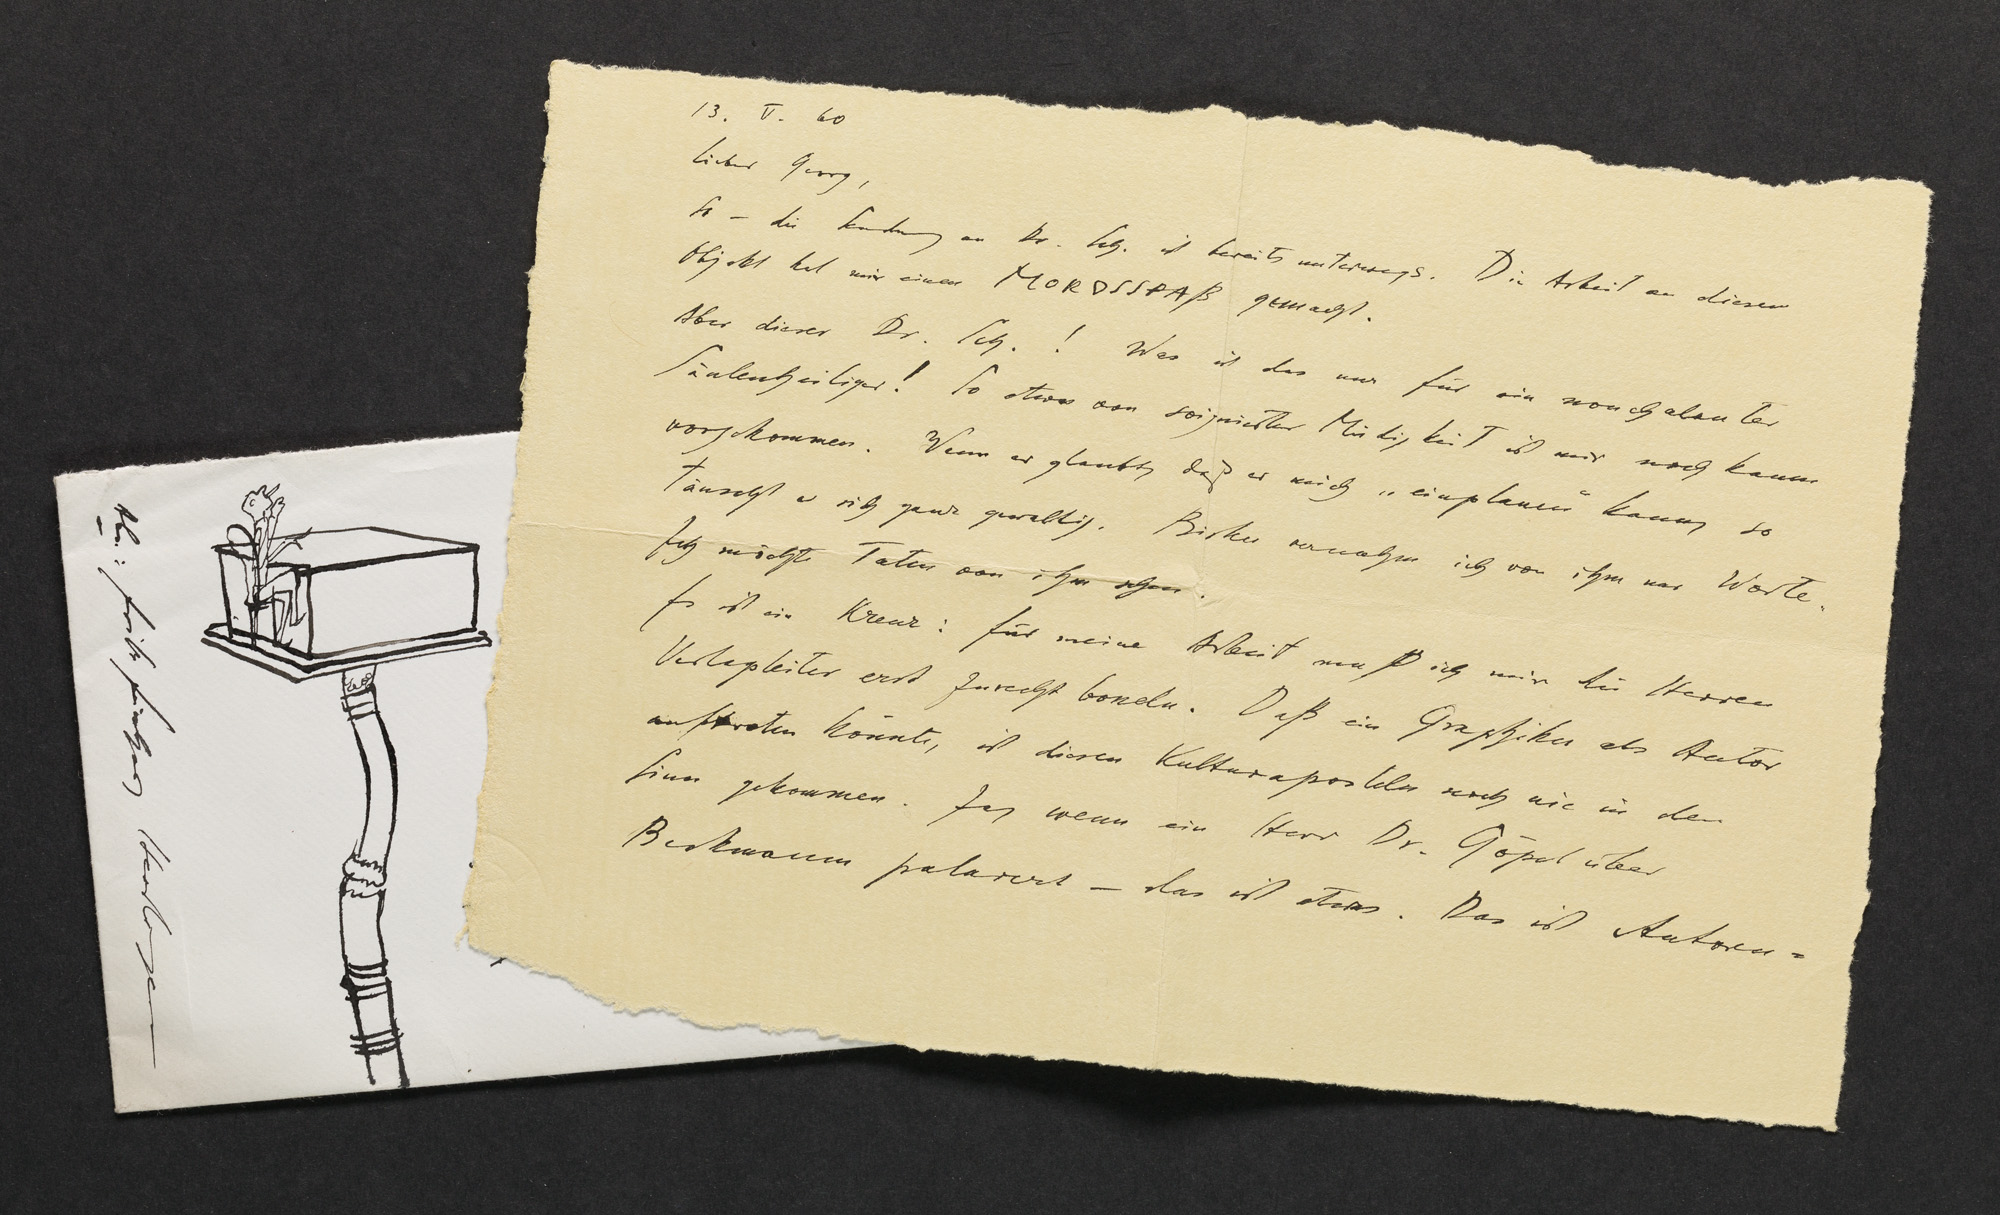 13. V. 60
Lieber Georg,
So – die Sendung an Dr. Sch. ist bereits unterwegs. Die Arbeit an diesem
Objekt hat mir einen MORDSSPAß gemacht.
Aber dieser Dr. Sch. ! Was ist das nur für ein nonchalanter
Säulenheiliger! So etwas von soignierter Müdigkeit ist mir noch kaum
vorgekommen. Wenn er glaubt, daß er mich „einplanen“ kann, so
täuscht er sich ganz gewaltig. Bisher vernahm ich von ihm nur Worte.
Ich möchte Taten von ihm sehen.
Es ist ein Kreuz: für meine Arbeit muß ich mir die Herren
Verlagsleiter erst zurecht boxeln. Daß ein Graphiker als Autor
auftreten könnte, ist diesen Kulturaposteln noch nie in den
Sinn gekommen. Ja, wenn ein Herr Dr. Göpel über
Beckmann palavert – das ist etwas. Das ist Autoren=
Abs.: fritz fischer, Nürtingen